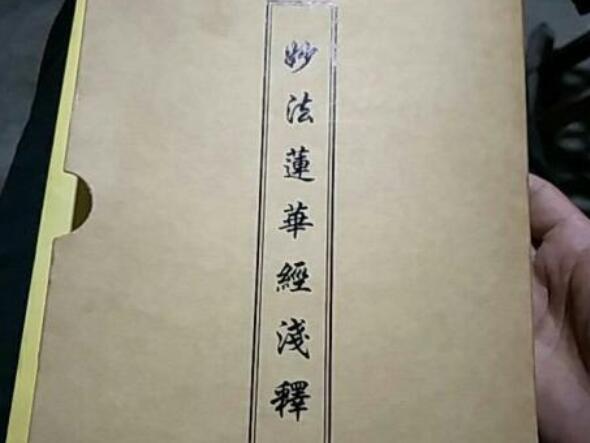 妙法蓮華經淺釋